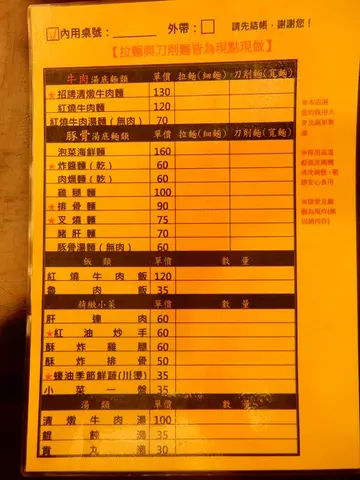 ☑內用桌號： 外帶：☐ 請先結帳，謝謝您！
【拉麵與刀削麵皆為現點現做】
牛肉湯底麵類 單價 拉麵(細麵) 刀削麵(寬麵)
★招牌清燉牛肉麵 130
紅燒牛肉麵 120
紅燒牛肉湯麵(無肉) 70
豚骨湯底麵類 單價 拉麵(細麵) 刀削麵(寬麵)
泡菜海鮮麵 160
★炸醬麵(乾) 60
肉燥麵(乾) 60
雞腿麵 100
★排骨麵 90
★叉燒麵 75
豬肝麵 70
豚骨湯麵(無肉) 60
飯類 單價 數量
紅燒牛肉飯 120
魯肉飯 35
精緻小菜 單價 數量
肝連肉 60
★紅油炒手 60
酥炸雞腿 60
酥炸排骨 50
★蠔油季節鮮蔬(川燙) 35
小菜一盤 35
湯類 單價 數量
清燉牛肉湯 100
餛飩湯 35
貢丸湯 30